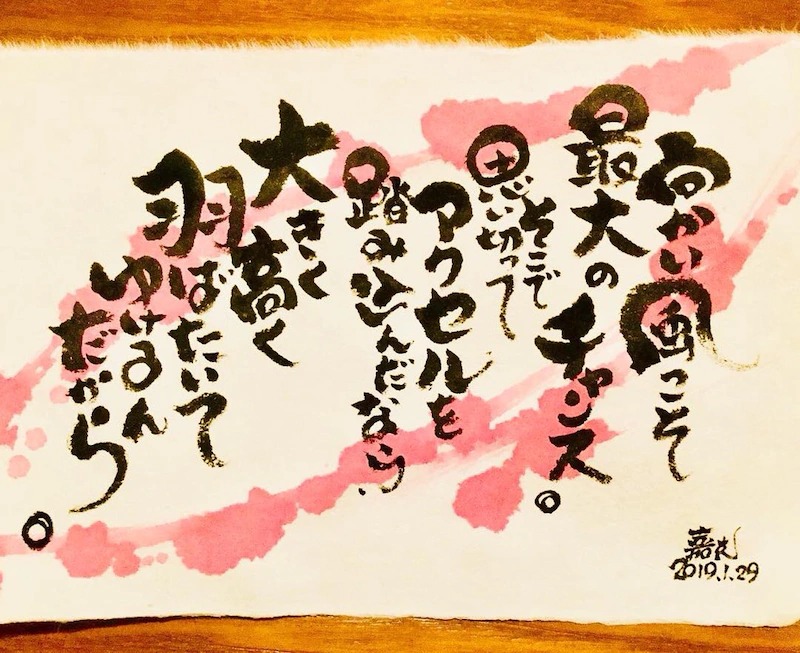 向かい風こそ
最大のチャンス。
そこで
思い切って
アクセルを
踏み込んだなら
大きく
高く
羽ばたいて
ゆけるん
だから。
2019.1.29